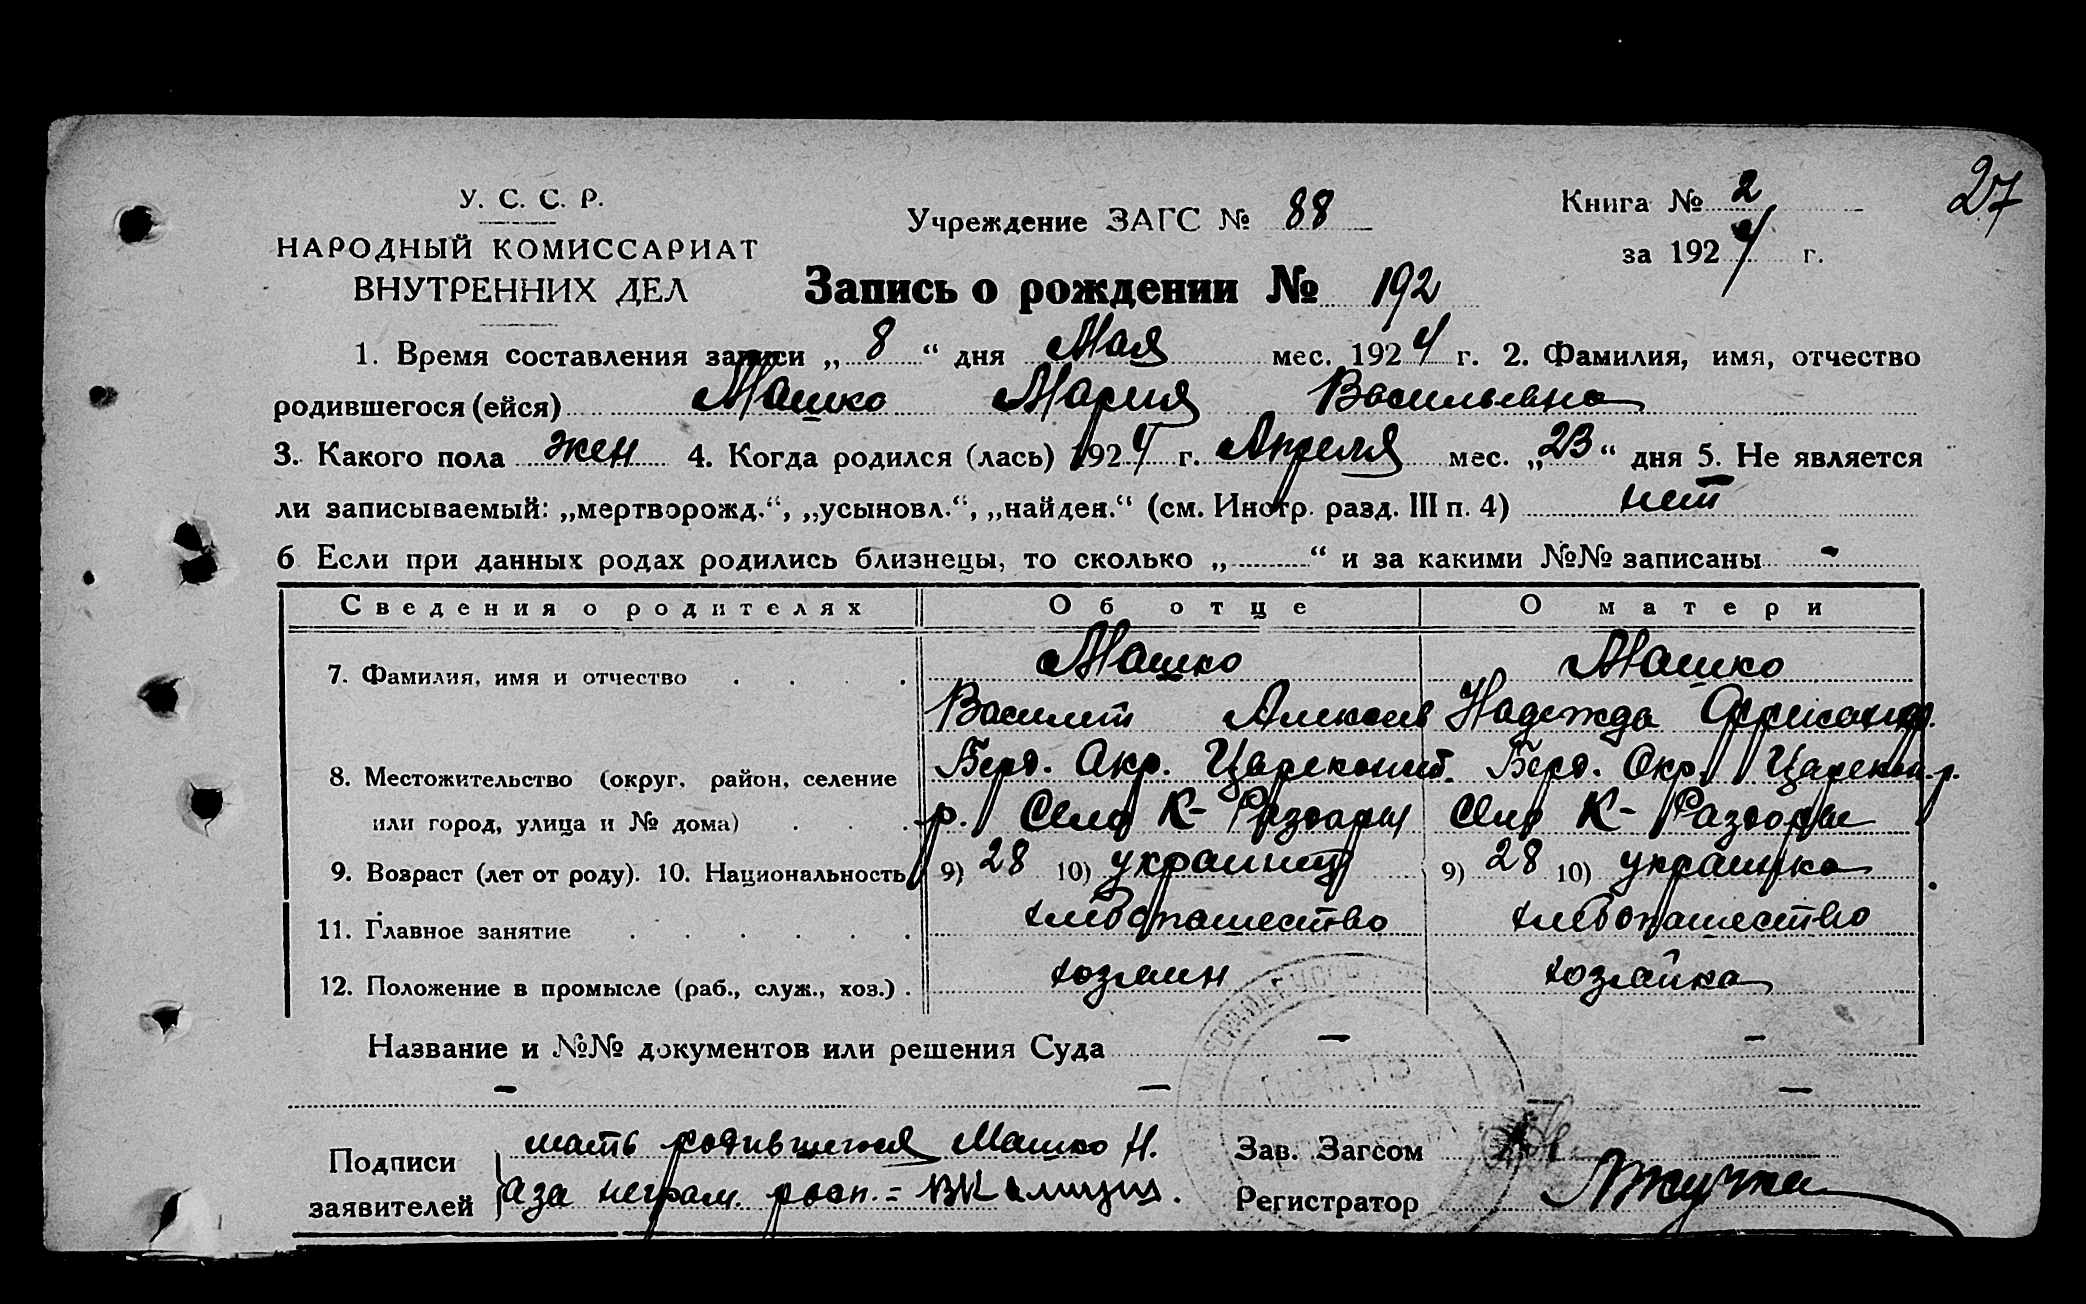 27
У. С. С. Р.
НАРОДНЫЙ КОМИССАРИАТ
ВНУТРЕННИХ ДЕЛ
Учреждение ЗАГС № 88
Книга № 2
за 1924 г.
Запись о рождении № 192
1. Время составления записи „ 8 “ дня Мая мес. 1924 г. 2. Фамилия, имя, отчество
родившегося (ейся) Машко Мария Васильевна
3. Какого пола жен 4. Когда родился (лась) 1924 г. Апреля мес. „23“ дня 5. Не является
ли записываемый: „мертворожд.“, „усыновл.“, „найден.“ (см. Инстр. разд. III п. 4) нет
6 Если при данных родах родились близнецы, то сколько „ “ и за какими №№ записаны -
Сведения о родителях Об отце О матери
7. Фамилия, имя и отчество Машко Машко
Василий Алексеев Надежда
8. Местожительство (округ, район, селение Берд. Окр. Берд. Окр.
или город, улица и № дома) р. Село К- Раздоры Село К- Раздоры
9. Возраст (лет от роду). 10. Национальность 9) 28 10) украинец 9) 28 10) украинка
11. Главное занятие хлебопашество хлебопашество
12. Положение в промысле (раб., служ., хоз.) хозяин хозяйка
Название и №№ документов или решения Суда - -
- - -
Подписи заявителей
мать родившегося Машко Н.
а за неграм. росп. =
Зав. Загсом
Регистратор